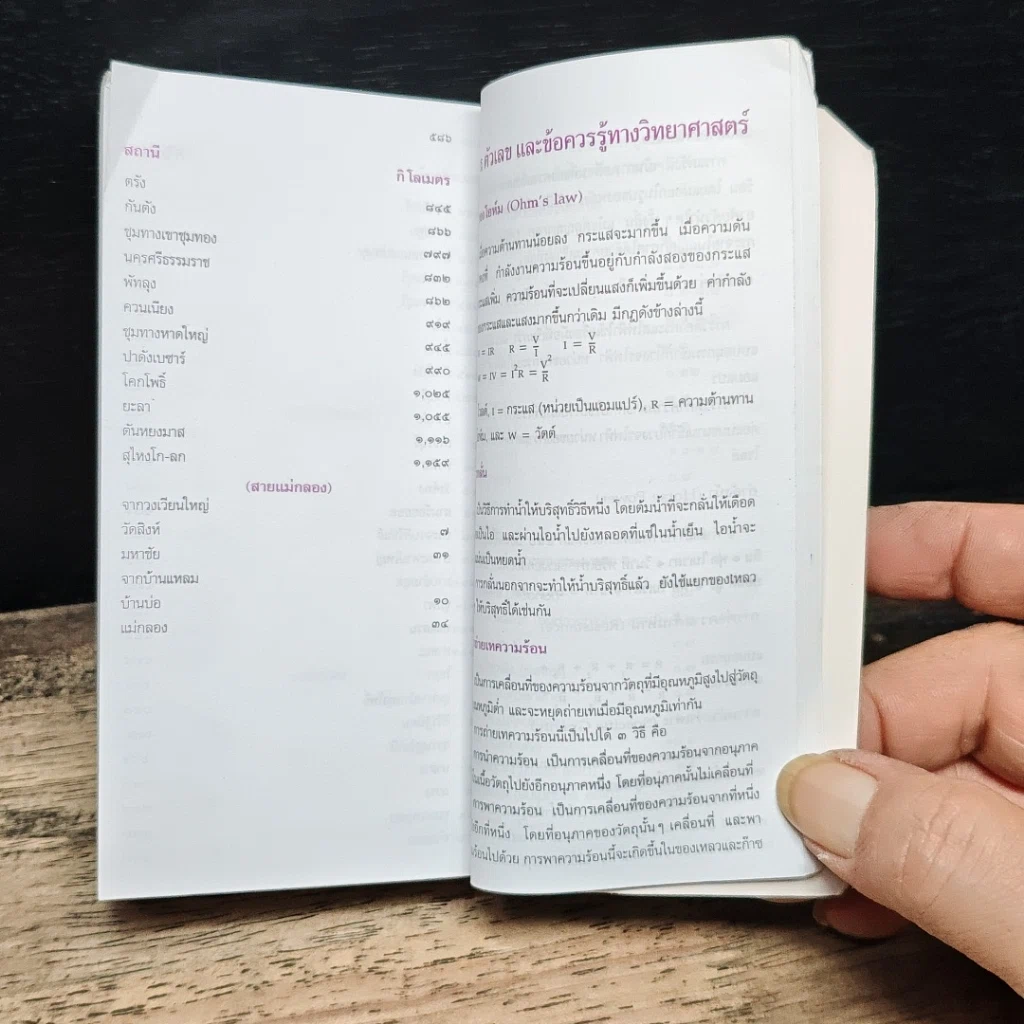 ๕๘๖
สถานี กิโลเมตร
ตรัง ๘๔๕
กันตัง ๘๖๖
ชุมทางเขาชุมทอง ๗๙๗
นครศรีธรรมราช ๘๓๒
พัทลุง ๘๖๒
ควนเนียง ๙๑๙
ชุมทางหาดใหญ่ ๙๔๕
ปาดังเบซาร์ ๙๙๐
โคกโพธิ์ ๑,๐๒๕
ยะลา ๑,๐๕๕
ตันหยงมาส ๑,๑๑๖
สุไหงโก-ลก ๑,๑๕๙
(สายแม่กลอง)
จากวงเวียนใหญ่
วัดสิงห์ ๗
มหาชัย ๓๑
จากบ้านแหลม
บ้านบ่อ ๑๐
แม่กลอง ๓๔
ตัวเลข และข้อควรรู้ทางวิทยาศาสตร์
โอห์ม (Ohm's law)
ความต้านทานน้อยลง กระแสจะมากขึ้น เมื่อความดัน
กำลังงานความร้อนขึ้นอยู่กับกำลังสองของกระแส
เพิ่ม ความร้อนที่จะเปลี่ยนแสงก็เพิ่มขึ้นด้วย ค่ากำลัง
กระแสและแสงมากขึ้นกว่าเดิม มีกฎดังข้างล่างนี้
= IR R = V/I I = V/R
= IV = I²R = V²/R
I = กระแส (หน่วยเป็นแอมแปร์), R = ความต้านทาน
และ W = วัตต์
เป็นวิธีการทำน้ำให้บริสุทธิ์วิธีหนึ่ง โดยต้มน้ำที่จะกลั่นให้เดือด
เป็นไอ และผ่านไอน้ำไปยังหลอดที่แช่ในน้ำเย็น ไอน้ำจะ
เป็นหยดน้ำ
การกลั่นนอกจากจะทำให้น้ำบริสุทธิ์แล้ว ยังใช้แยกของเหลว
ให้บริสุทธิ์ได้เช่นกัน
ถ่ายเทความร้อน
เป็นการเคลื่อนที่ของความร้อนจากวัตถุที่มีอุณหภูมิสูงไปสู่วัตถุ
อุณหภูมิต่ำ และจะหยุดถ่ายเทเมื่อมีอุณหภูมิเท่ากัน
การถ่ายเทความร้อนนี้เป็นไปได้ ๓ วิธี คือ
การนำความร้อน เป็นการเคลื่อนที่ของความร้อนจากอนุภาค
ในเนื้อวัตถุไปยังอีกอนุภาคหนึ่ง โดยที่อนุภาคนั้นไม่เคลื่อนที่
การพาความร้อน เป็นการเคลื่อนที่ของความร้อนจากที่หนึ่ง
อีกที่หนึ่ง โดยที่อนุภาคของวัตถุนั้นๆ เคลื่อนที่ และพา
ร้อนไปด้วย การพาความร้อนนี้จะเกิดขึ้นในของเหลวและก๊าซ